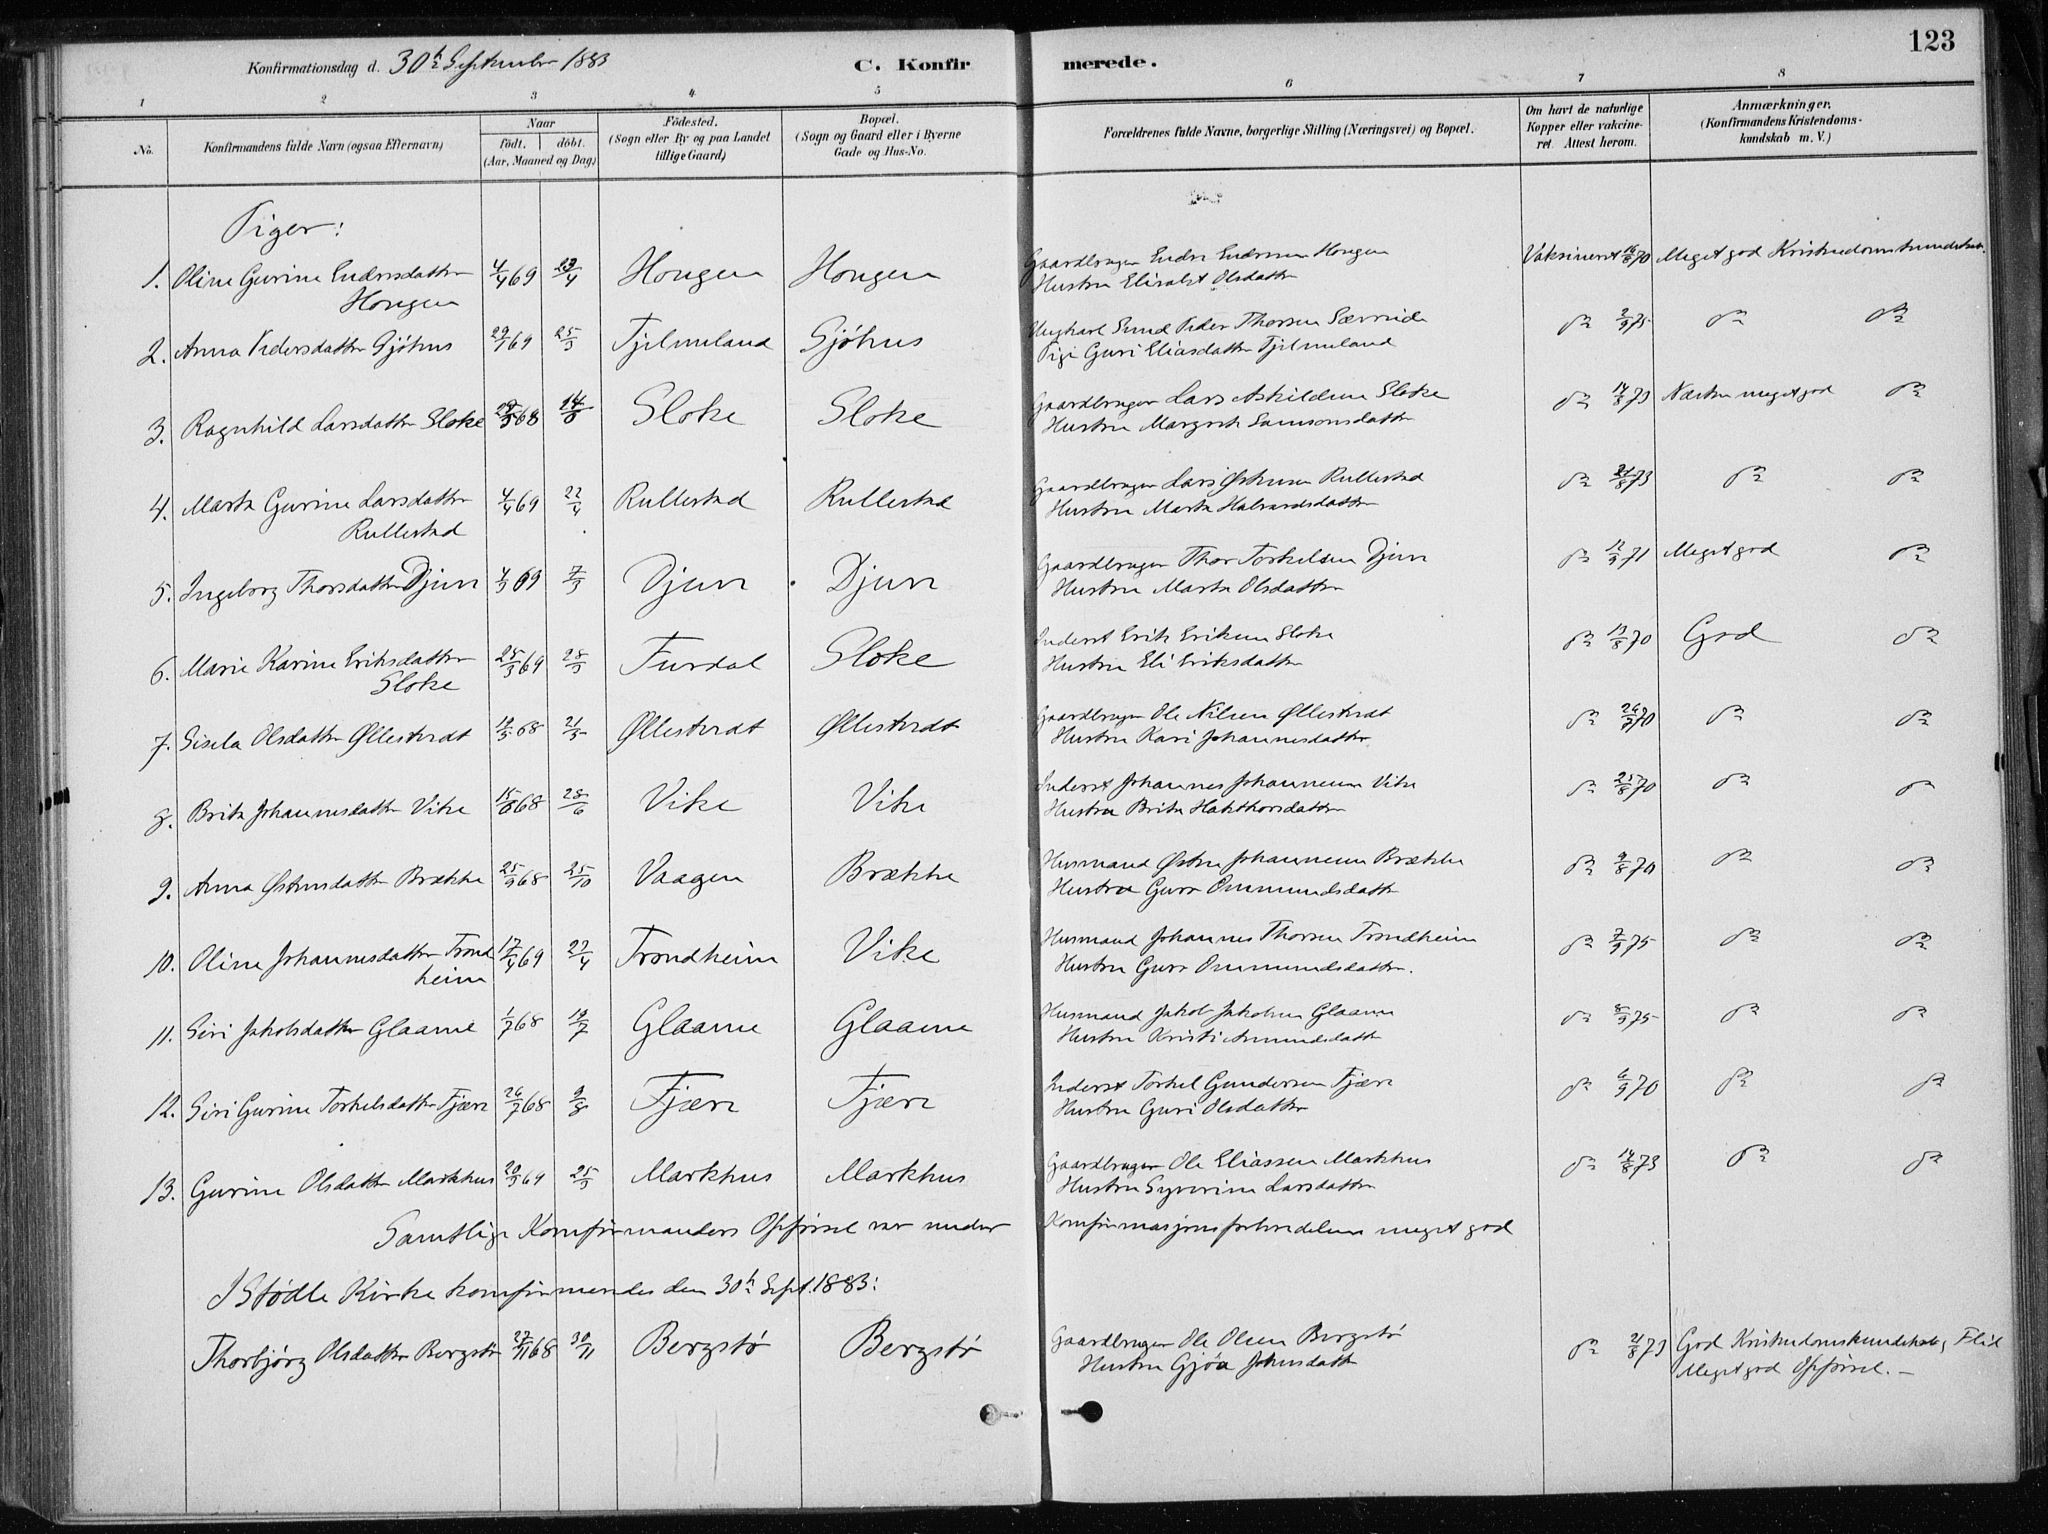 123
Konfirmationsdag d. 30h September 1883
C. Konfirmerede.
1 2 3 4 5 6 7 8
No.
Konfirmandens fulde Navn (ogsaa Efternavn)
Naar
født. døbt.
(Aar, Maaned og Dag)
Fødested.
(Sogn eller By og paa Landet
tillige Gaard)
Bopæl.
(Sogn og Gaard eller i Byerne
Gade og Hus-No.
Forældrenes fulde Navne, borgerlige Stilling (Næringsvei) og Bopæl.
Om havt de naturlige
Kopper eller vakcine-
ret. Attest herom.
Anmærkninger.
(Konfirmandens Kristendoms-
kundskab m. V.)
Piger:
1. Oline Gurine Endresdatter 4/4 69 23/4 Hougen Hougen Gaardbruger Endre Endresen Hougen Vaksineret 16/8 70 Meget god Kristendomskundskab
Hougen Hustru Elisabet Olsdatter
2. Anna Pedersdatter Gjøhus 29/1 69 25/3 Fjelmeland Gjøhus Ungkarl Peder Thorsen do 2/9 75 do do
Pige Guri Eliasdatter Fjelmeland
3. Ragnhild Larsdatter Sloke 68 14 Sloke Sloke Gaardbruger Lars Askildsen Sloke do 14/8 73 Næsten meget god do
Hustru Margret Samsonsdatter
4. Marta Gurine Larsdatter 4/4 69 22/4 Rullestad Rullestad Gaardbruger Lars Østensen Rullestad do 21/8 73 do do
Rullestad Hustru Marta Halvardsdatter
5. Ingeborg Thorsdatter Djuv 4/3 69 7/3 Djuv Djuv Gaardbruger Thor Torkelsen Djuv do 12/9 71 Meget god do
Hustru Marta Olsdatter
6. Marie Karine Eriksdatter 25/3 69 28/3 Furdal Sloke Inderst Erik Eriksen Sloke do 13/8 70 God do
Sloke Hustru Eli Eriksdatter
7. Sisela Olsdatter Øllestvedt 19/5 68 21/5 Øllestvedt Øllestvedt Gaardbruger Ole Nilsen Øllestvedt do 26/7 70 do do
Hustru Kari Johannesdatter
8. Brita Johannesdatter Vike 15/6 68 28/6 Vike Vike Inderst Johannes Johannesen Vike do 25/8 70 do do
Hustru Brita Hakthorsdatter
9. Anna Østensdatter Brække 25/9 68 25/10 Vaagen Brække Husmand Østen Johannesen Brække do 9/8 70 do do
Hustru Guro Ommundsdatter
10. Oline Johannesdatter Trond 17/4 69 27/4 Trondheim Vike Husmand Johannes Thorsen Trondheim do 7/9 75 do do
heim Hustru Guro Ommundsdatter.
11. Siri Jakobsdatter Glaame 1/7 68 19/7 Glaame Glaame Husmand Jakob Jakobsen Glaame do 8/9 75 do do
Hustru Kristi Amundsdatt
12. Siri Gurine Torkelsdatter Fjære 26/7 68 9/8 Fjære Fjære Inderst Torkel Gundersen Fjære do 6/9 70 do do
Hustru Guri Olsdatter
13. Gurine Olsdatter Markhus 20/3 69 25/3 Markhus Markhus Gaardbruger Ole Eliassen Markhus do 14/8 73 do do
Hustru Syverine Larsdatter
Samtlige Konfirmanders Opførsel var under Konfirmasjonsforberedelsen meget god
I Stødle Kirke konfirmeredes den 30h Sept. 1883:
Thorbjørg Olsdatter Bergstø 27/11 68 30/11 Bergstø Bergstø Gaardbruger Ole Olsen Bergstø do 21/8 73 God Kristendomskundskab, Flid
Hustru Gjøa Johnsdatt Meget god Opførsel. —